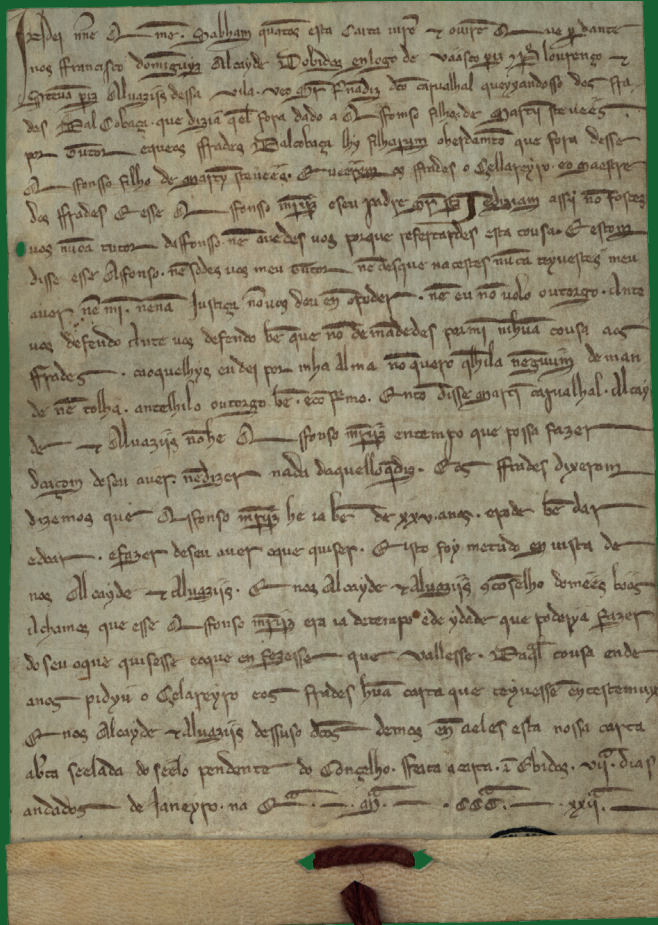 In dei nñe Amẽ. Sabham quãtos esta Carta virẽ ⁊ ouvirẽ que perdante
nos ffrancisco dominguiz Alcayde Dobidos en logo de Vaasco periz ⁊ P. lourenço ⁊
Steua periz Aluaziis dessa Vila. Martĩ Fnãdiz dc̃o carualhal queyxandosso dos fra
des Dalcobaça. que diziã quel fora dado a Affonso filho de Martĩ steueẽs.
por Tutor e que os ffrades Dalcobaça lhy filharum o herdamẽto que fora desse
Affonso filho de Martĩ steueẽs. E os ffrades o Cellareyro. e o Maestre
dos ffrades E esse Affonso mr̃ijz e seu padre diziam assy nõ fostes
uos nũca tutor daffonso. nẽ auedes uos porque refertardes esta cousa. E estom
disse esse Affonso. nẽ sodes uos meu Tutor nẽ desque nacestes nũca teyuestes meu
auer nẽ mi. nẽ na Justiça nõ uos deu en poder. nẽ eu nõ uolo outorgo. Ante
uos defendo Ante uos defendo bẽ que nõ demãdedes por mi nẽhũa cousa aos
ffrades. ca o que lhys eu dei por mha alma nõ quero que lhila nẽguum deman
de nẽ tolha. ante lhilo outorgo bẽ. Entõ disse Martĩ carualhal. Alcay
de ⁊ Aluaziis nõ he Affonso mr̃ijz en tempo que possa fazer
doaçom de seu auer. nẽ dizer nada daquello que diz. E os ffrades dixerom
dizemos que Affonso mr̃ijz he ia bẽ de xxv. anos. e pode bẽ dar
e doar. e fazer de seu auer o que quiser. E isto foy metudo en uista de
nos Alcayde ⁊ Aluaziis. E nos Alcayde ⁊ Aluaziis cõselho domeẽs boõs
ilchamos que esse Affonso mr̃ijz era ia de tempo e de ydade que poderya fazer
do seu o que quisesse e o que en fezesse que vallesse. Daq̃l cousa ende
anos pidyu o Celareyro e os frades hũa carta que teyuessẽ en testemuyo
E nos Alcayde ⁊ Aluaziis dessuso dc̃os demos en a eles esta nossa carta
ab̃ta seelada do seelo pendente do Conçelho. ffeita a carta. ĩ Obidos. vij. dias
andados de Janeyro. na Era. M. CCC. xxij.